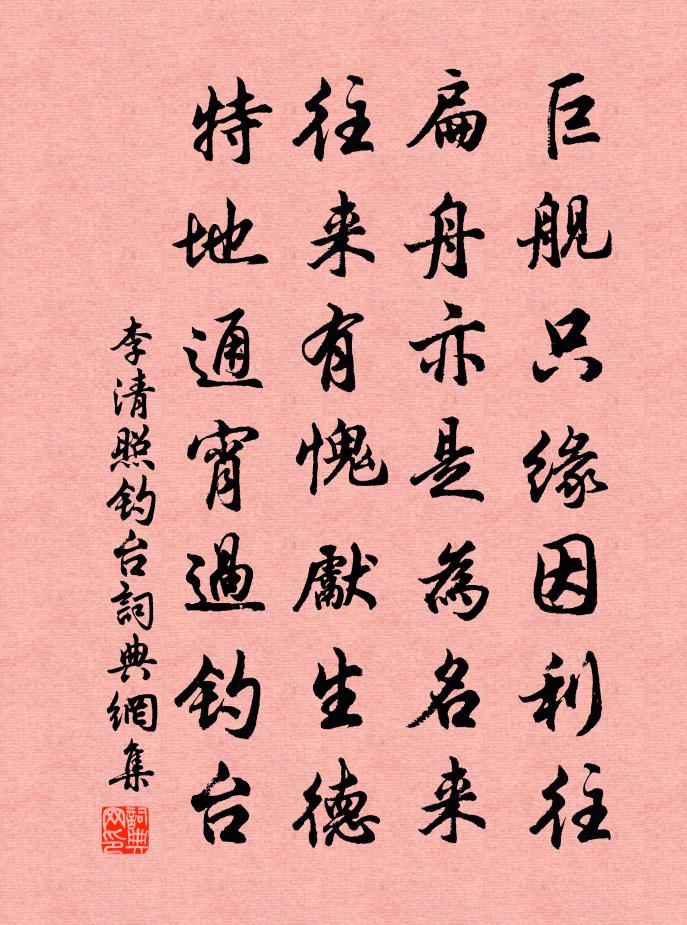 巨舰只缘因利往
扁舟亦是為名来
往来有愧獻生德
特地通宵過钓台
李清照钓台詞典網集
詞典网印